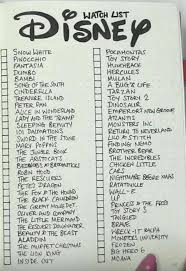 WATCH LIST
DISNEY
SNOW WHITE
PINOCCHIO
FANTASIA
DUMBO
BAMBI
SONG OF THE SOUTH
CINDERELLA
TREASURE ISLAND
PETER PAN
ALICE IN WONDERLAND
LADY AND THE TRAMP
SLEEPING BEAUTY
101 DALMATIONS
SWORD IN THE STONE
MARY POPPINS
THE JUNGLE BOOK
THE ARISTOCATS
BEDKNOBS & BROOMSTICKS
ROBIN HOOD
THE RESCUERS
PETES DRAGON
THE FOX & THE HOUND
THE BLACK CAULDRON
THE GREAT MOUSE
OLIVER AND COMPANY
THE LITTLE MERMAID
THE RESCUERS DOWNUNDER
BEAUTY & THE BEAST
ALADDIN
THE MUPPET CHRISTMAS
THE LION KING
INSIDE OUT
POCAHONTAS
TOY STORY
HUNCHBACK
HERCULES
MULAN
A BUG'S LIFE
TARZAN
TOY STORY 2
DINOSAUR
EMPERORS NEW GROOVE
ATLANTIS
MONSTERS INC
RETURN TO NEVERLAND
LILO & STITCH
FINDING NEMO
BROTHER BEAR
THE INCREDIBLES
CHICKEN LITTLE
CARS
NIGHTMARE BEFORE XMAS
RATATOUILLE
WALL-E
UP
PRINCESS & THE FROG
TOY STORY 3
TANGLED
BRAVE
WRECK-IT RALPH
MONSTERS UNIVERSITY
FROZEN
BIG HERO 6
MOANA